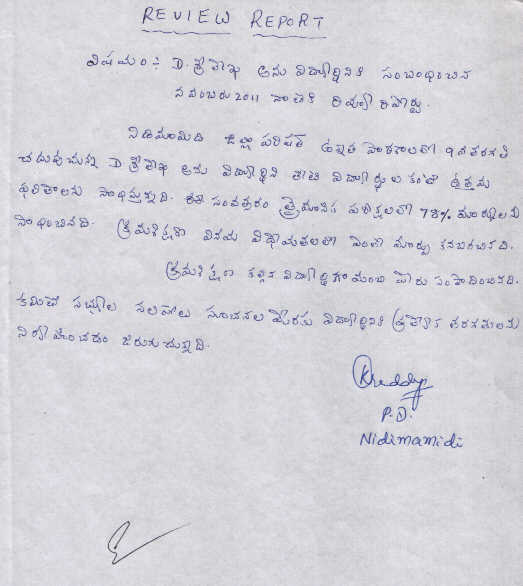 REVIEW REPORT
విషయం : D. శ్రీశాఖ అను విద్యార్థినికి సంబంధించిన
నవంబరు 2011 నాటికి రివ్యూ రిపోర్టు.
నిడిమామిడి జిల్లా పరిషత్ ఉన్నత పాఠశాలలో 9వతరగతి
చదువుచున్న D శ్రీశాఖ అను విద్యార్థిని తోటి విద్యార్థుల కంటే ఉత్తమ
ఫలితాలను సాధిస్తున్నది. ఈ సంవత్సరం త్రైమాసిక పరీక్షలలో 78% మార్కులను
సాధించినది. క్రమశిక్షణ వినయ విధేయతలలో ఎంతో మార్పు కనబరచినది.
క్రమశిక్షణ కల్గిన విద్యార్థిగా మంచి పేరు సంపాదించినది.
కమిటీ సభ్యుల సలహాలు సూచనల మేరకు విద్యార్థినికి ప్రత్యేక తరగతులను
నిర్వహించడం జరుగుచున్నది.
Kreddy
P.D.
Nidimamidi